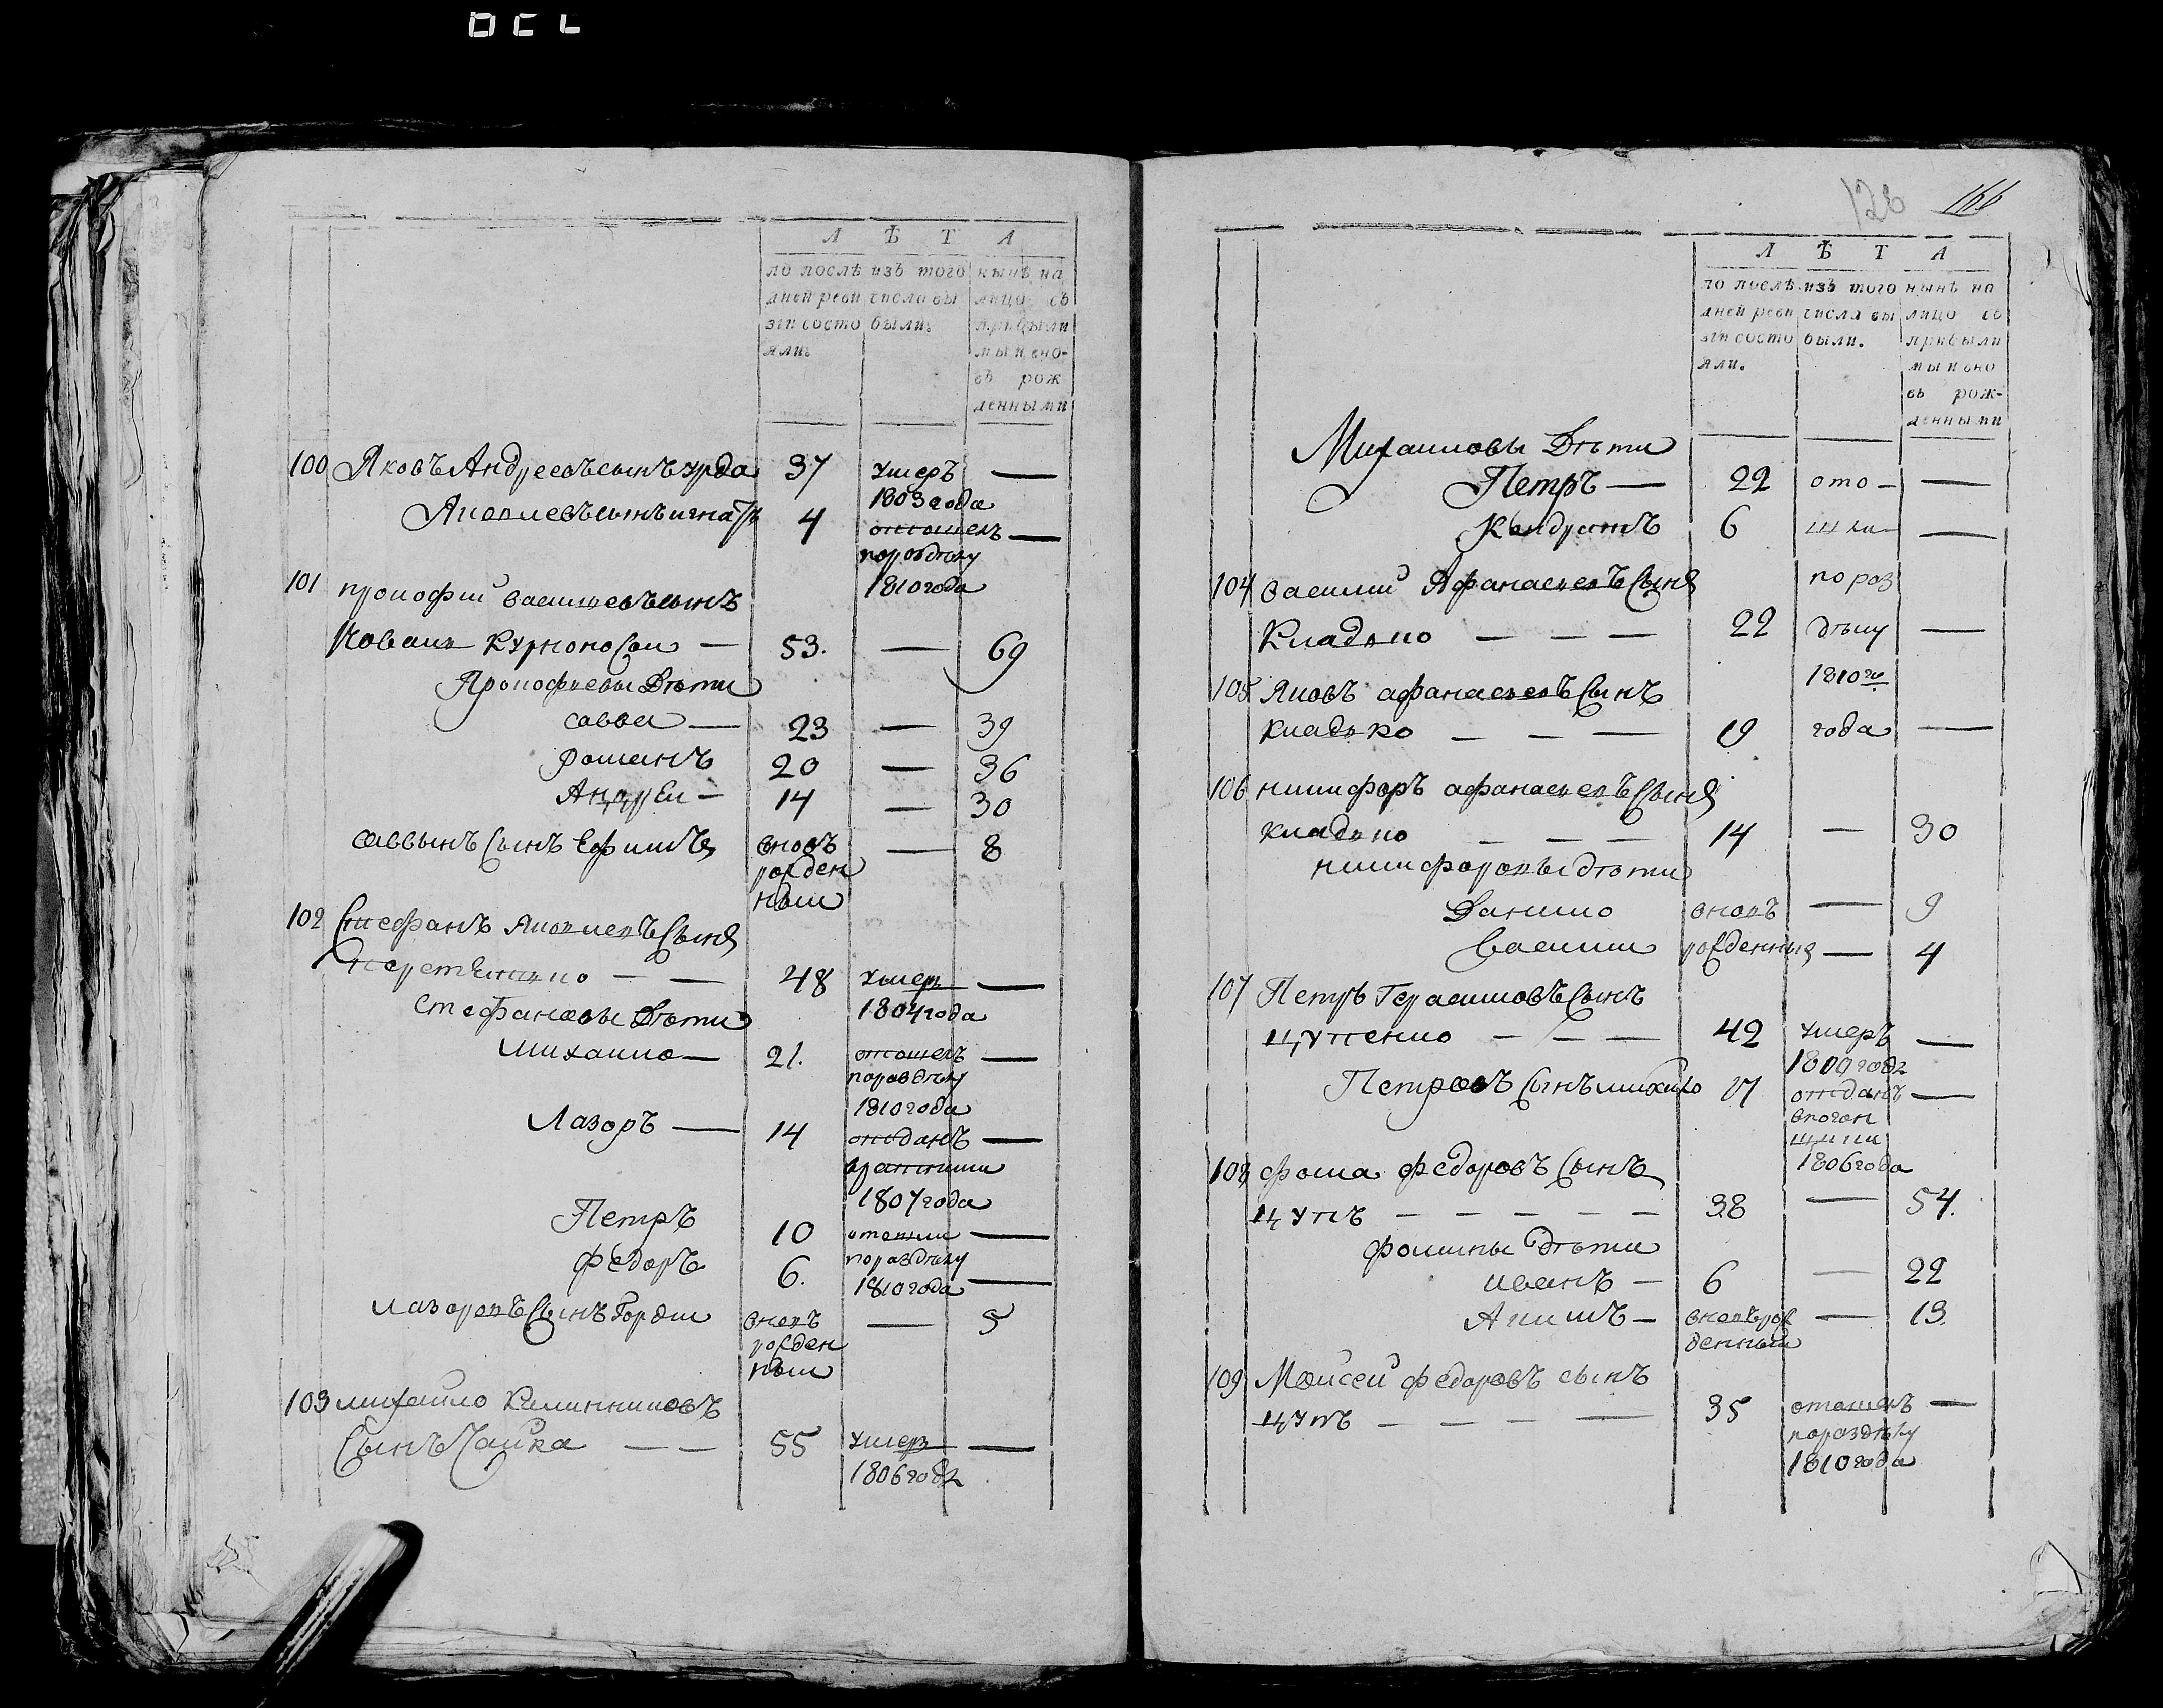 Л Ѣ Т А
по послѣ дней реви зіи состо яли.
изъ того числа вы были.
нынѣ на лицо съ прибыли мы и вно въ рож денными
100 Яковъ Андреевъ сынъ Урда 37 умеръ —
1803 года
Яковлевъ сынъ Игнатъ 4 отошелъ —
по роздѣлу
1810 года
101 Прокофий Васильевъ сынъ
Курноносый — 53. — 69
Прокофиевы Дѣти
Савва — 23 — 39
Романъ 20 — 36
Андрей — 14 — 30
Саввынъ Сынъ Ефимъ вновъ — 8
рожден
ный
102 Стефанъ Яковлевъ Сынъ
— — 48 умеръ —
1804 года
Стефановы Дѣти
Михайло — 21. отошелъ —
по роздѣлу
1810 года
Лазоръ — 14 отданъ —
1807 года
Петръ 10 отошли —
по раздѣлу
Федоръ 6. 1810 года —
Лазоревъ Сынъ Гордій вновъ — 5
рожден
ный
103 Михайло Калинниковъ
Сынъ Чайка — — 55 умеръ —
1806 года
128 166
Л Ѣ Т А
по послѣ дней реви зіи состо яли.
изъ того числа вы были.
нынѣ на лицо съ прибыли мы и вно въ рож- денными
Михайловы Дѣти
Петръ — 22 ото — —
Кондратъ 6 шли —
104 Василий Афанасьевъ Сынъ по роз
Кладько — — — 22 дѣлу —
105 Яковъ Афанасьевъ Сынъ 1810го
Кладько — — — 19 года —
106 Никифоръ Афанасьевъ Сынъ
Кладько — — — 14 — 30
Никифоровы дѣти
Данило вновъ — 9
Василий рожденныя — 4
107 Петръ Герасимовъ Сынъ
Цупенко — — — 42 умеръ —
1809 года
Петровъ Сынъ Михайло 17 отданъ —
в погон
щики
1806 года
108 Фома Федоровъ Сынъ
Цупъ — — — — — 38 — 54.
Фомины дѣти
Иванъ — 6 — 22
Акимъ — вновъ рож — 13.
денный
109 Моисей Федоровъ сынъ
Цупъ — — — — 35 отошелъ —
по раздѣлу
1810 года